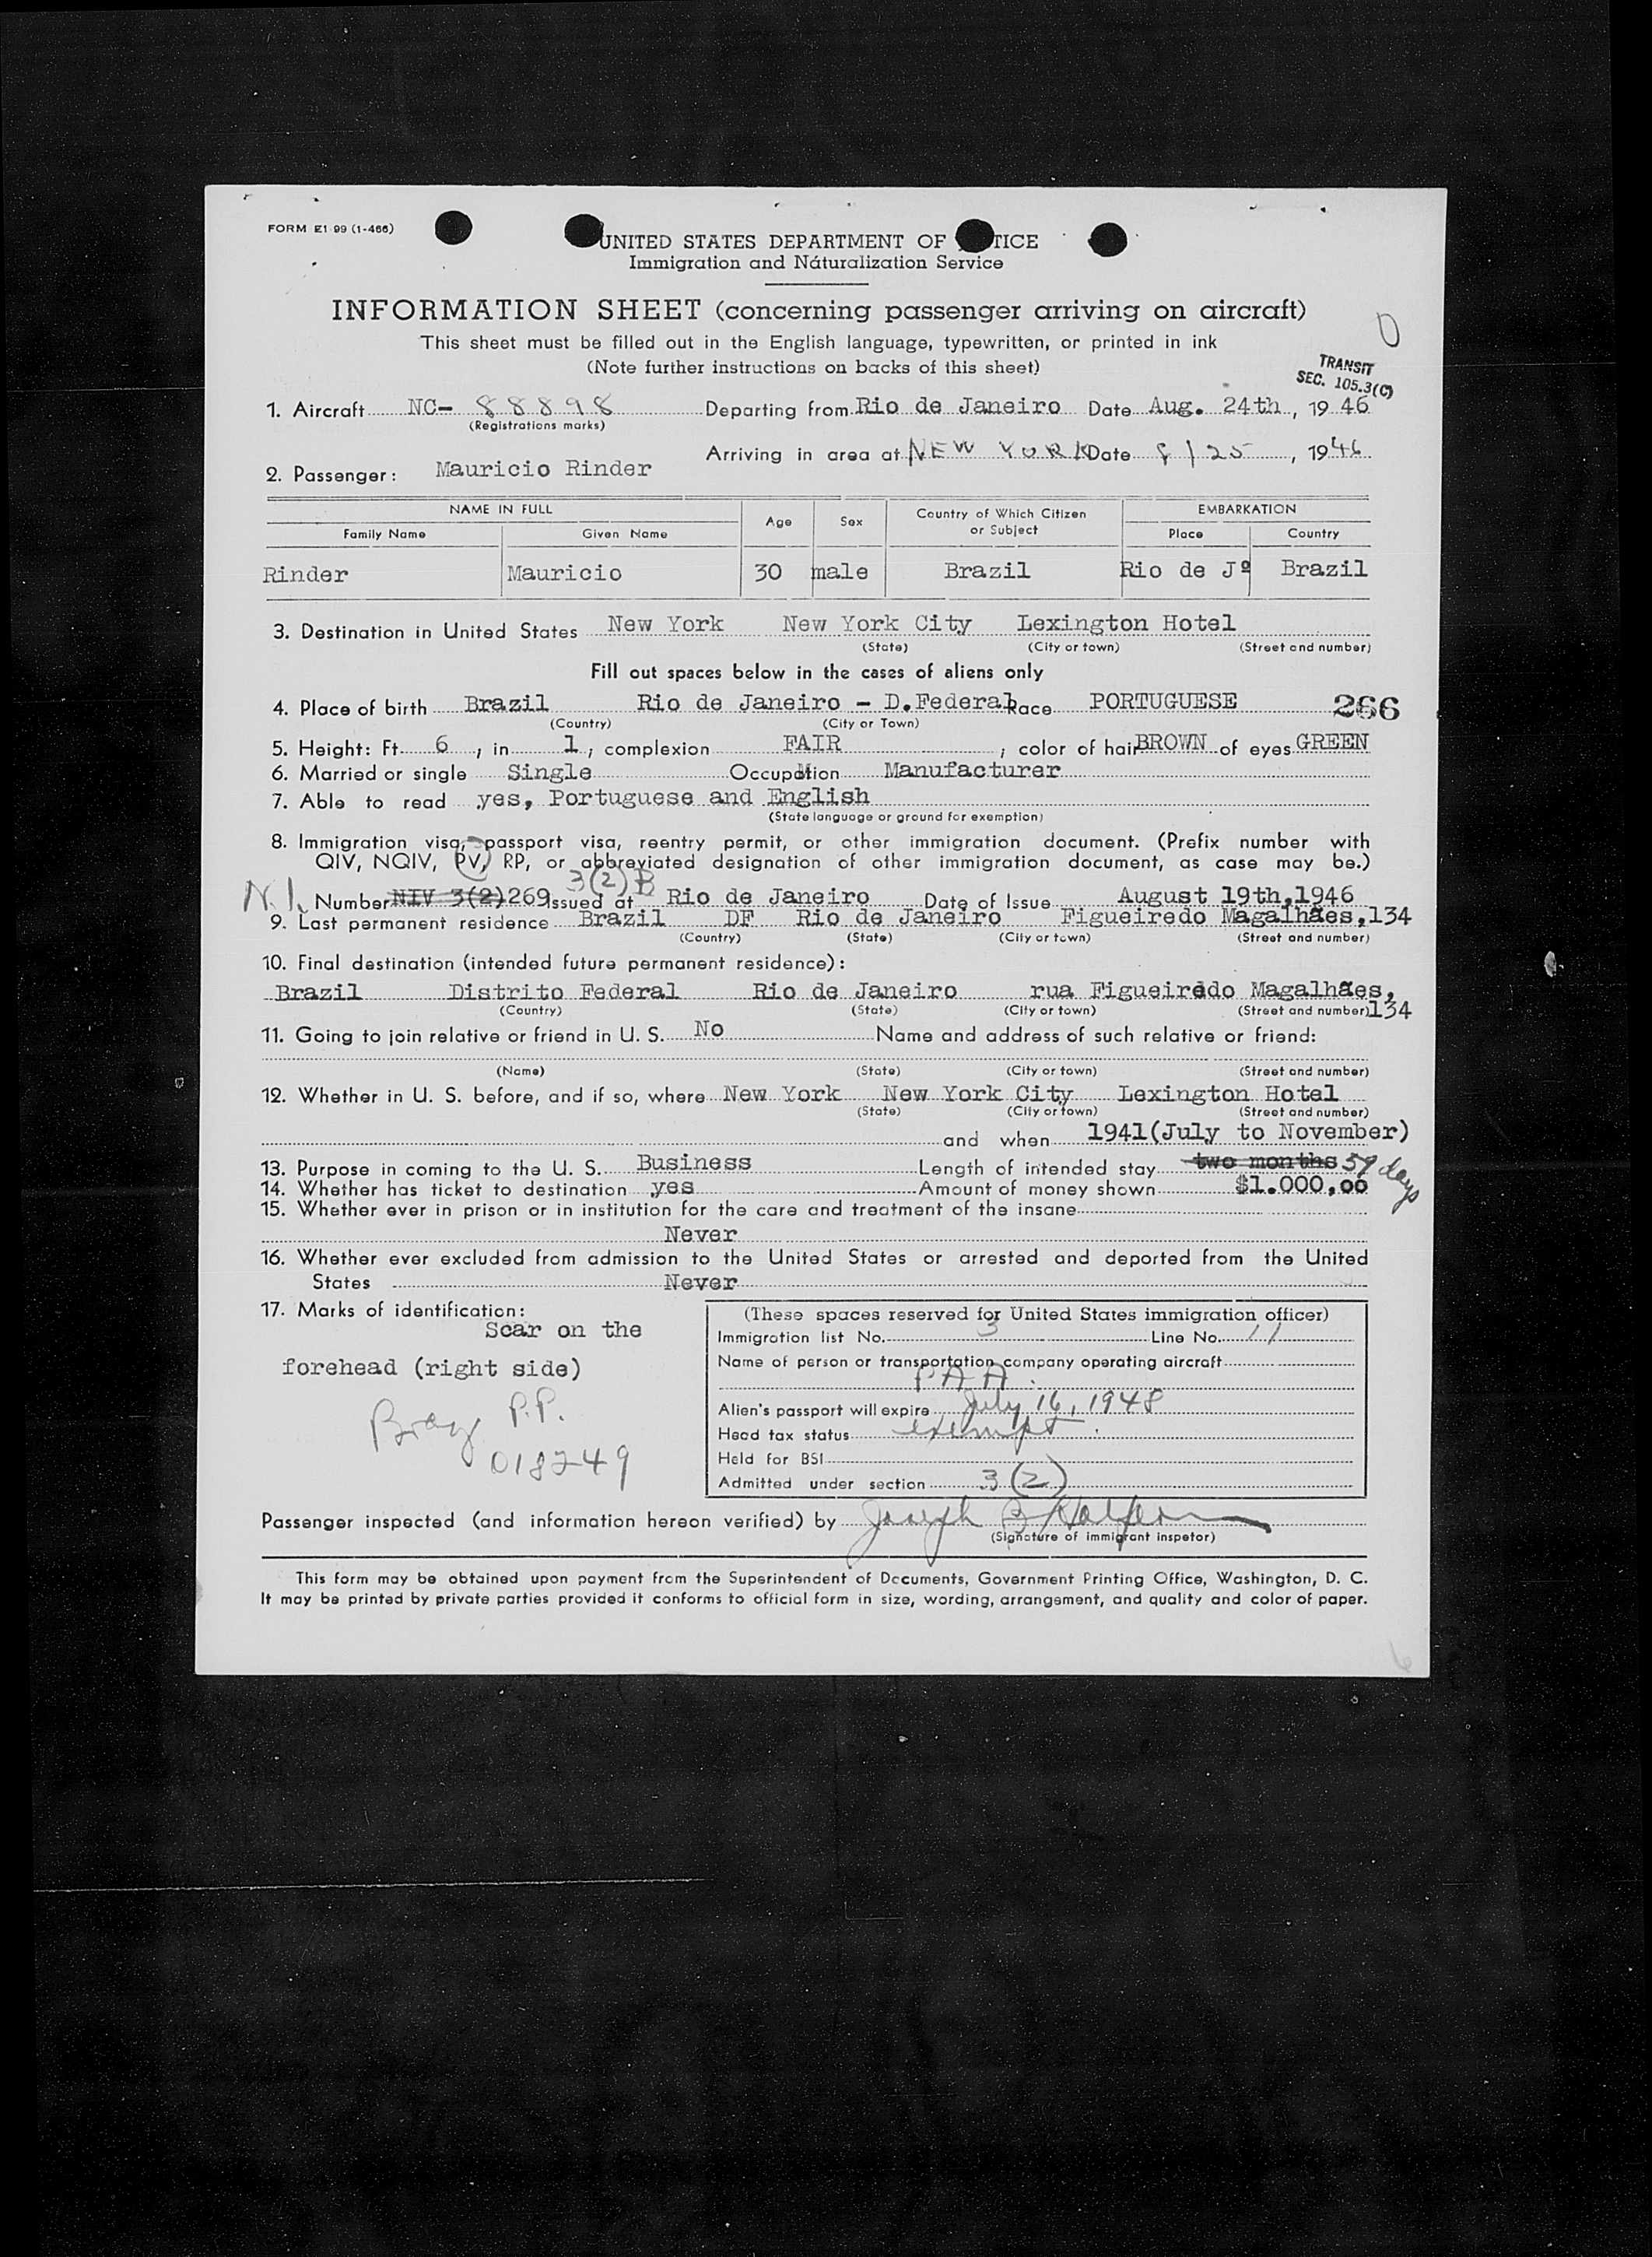 FORM E1 99 (1-466)
UNITED STATES DEPARTMENT OF TICE
Immigration and Naturalization Service
INFORMATION SHEET (concerning passenger arriving on aircraft)
This sheet must be filled out in the English language, typewritten, or printed in ink
(Note further instructions on backs of this sheet)
TRANSIT
SEC. 105.3(C)
1. Aircraft NC- 88898 Departing from Rio de Janeiro Date Aug. 24th, 1946
(Registrations marks)
Arriving in area at NEW YORK Date 8/25, 1946
2. Passenger: Mauricio Rinder
NAME IN FULL Age Sex Country of Which Citizen or Subject EMBARKATION
Family Name Given Name Place Country
Rinder Mauricio 30 male Brazil Rio de Jº Brazil
3. Destination in United States New York New York City Lexington Hotel
(State) (City or town) (Street and number)
Fill out spaces below in the cases of aliens only
4. Place of birth Brazil Rio de Janeiro - D.Federal Race PORTUGUESE 266
(Country) (City or Town)
5. Height: Ft. 6, in 1; complexion FAIR; color of hair BROWN of eyes GREEN
6. Married or single Single Occupation Manufacturer
7. Able to read yes, Portuguese and English
(State language or ground for exemption)
8. Immigration visa, passport visa, reentry permit, or other immigration document. (Prefix number with
QIV, NQIV, PV, RP, or abbreviated designation of other immigration document, as case may be.)
3(2)B
N.I. Number NIV 3(2)269 Issued at Rio de Janeiro Date of Issue August 19th,1946
9. Last permanent residence Brazil DF Rio de Janeiro Figueiredo Magalhães,134
(Country) (State) (City or town) (Street and number)
10. Final destination (intended future permanent residence):
Brazil Distrito Federal Rio de Janeiro rua Figueiredo Magalhães,
(Country) (State) (City or town) (Street and number) 134
11. Going to join relative or friend in U. S. No Name and address of such relative or friend:
(Name) (State) (City or town) (Street and number)
12. Whether in U. S. before, and if so, where New York New York City Lexington Hotel
(State) (City or town) (Street and number)
and when 1941(July to November)
13. Purpose in coming to the U. S. Business Length of intended stay two months 59 days
14. Whether has ticket to destination yes Amount of money shown $1.000,00
15. Whether ever in prison or in institution for the care and treatment of the insane
Never
16. Whether ever excluded from admission to the United States or arrested and deported from the United
States Never
17. Marks of identification:
Scar on the
forehead (right side)
Braz P.P.
018249
(These spaces reserved for United States immigration officer)
Immigration list No. 3 Line No. 11
Name of person or transportation company operating aircraft
PAA.
Alien's passport will expire July 16, 1948
Head tax status exempt.
Held for BSI
Admitted under section 3(2)
Passenger inspected (and information hereon verified) by Joseph B
(Signature of immigrant inspetor)
This form may be obtained upon payment from the Superintendent of Documents, Government Printing Office, Washington, D. C.
It may be printed by private parties provided it conforms to official form in size, wording, arrangement, and quality and color of paper.